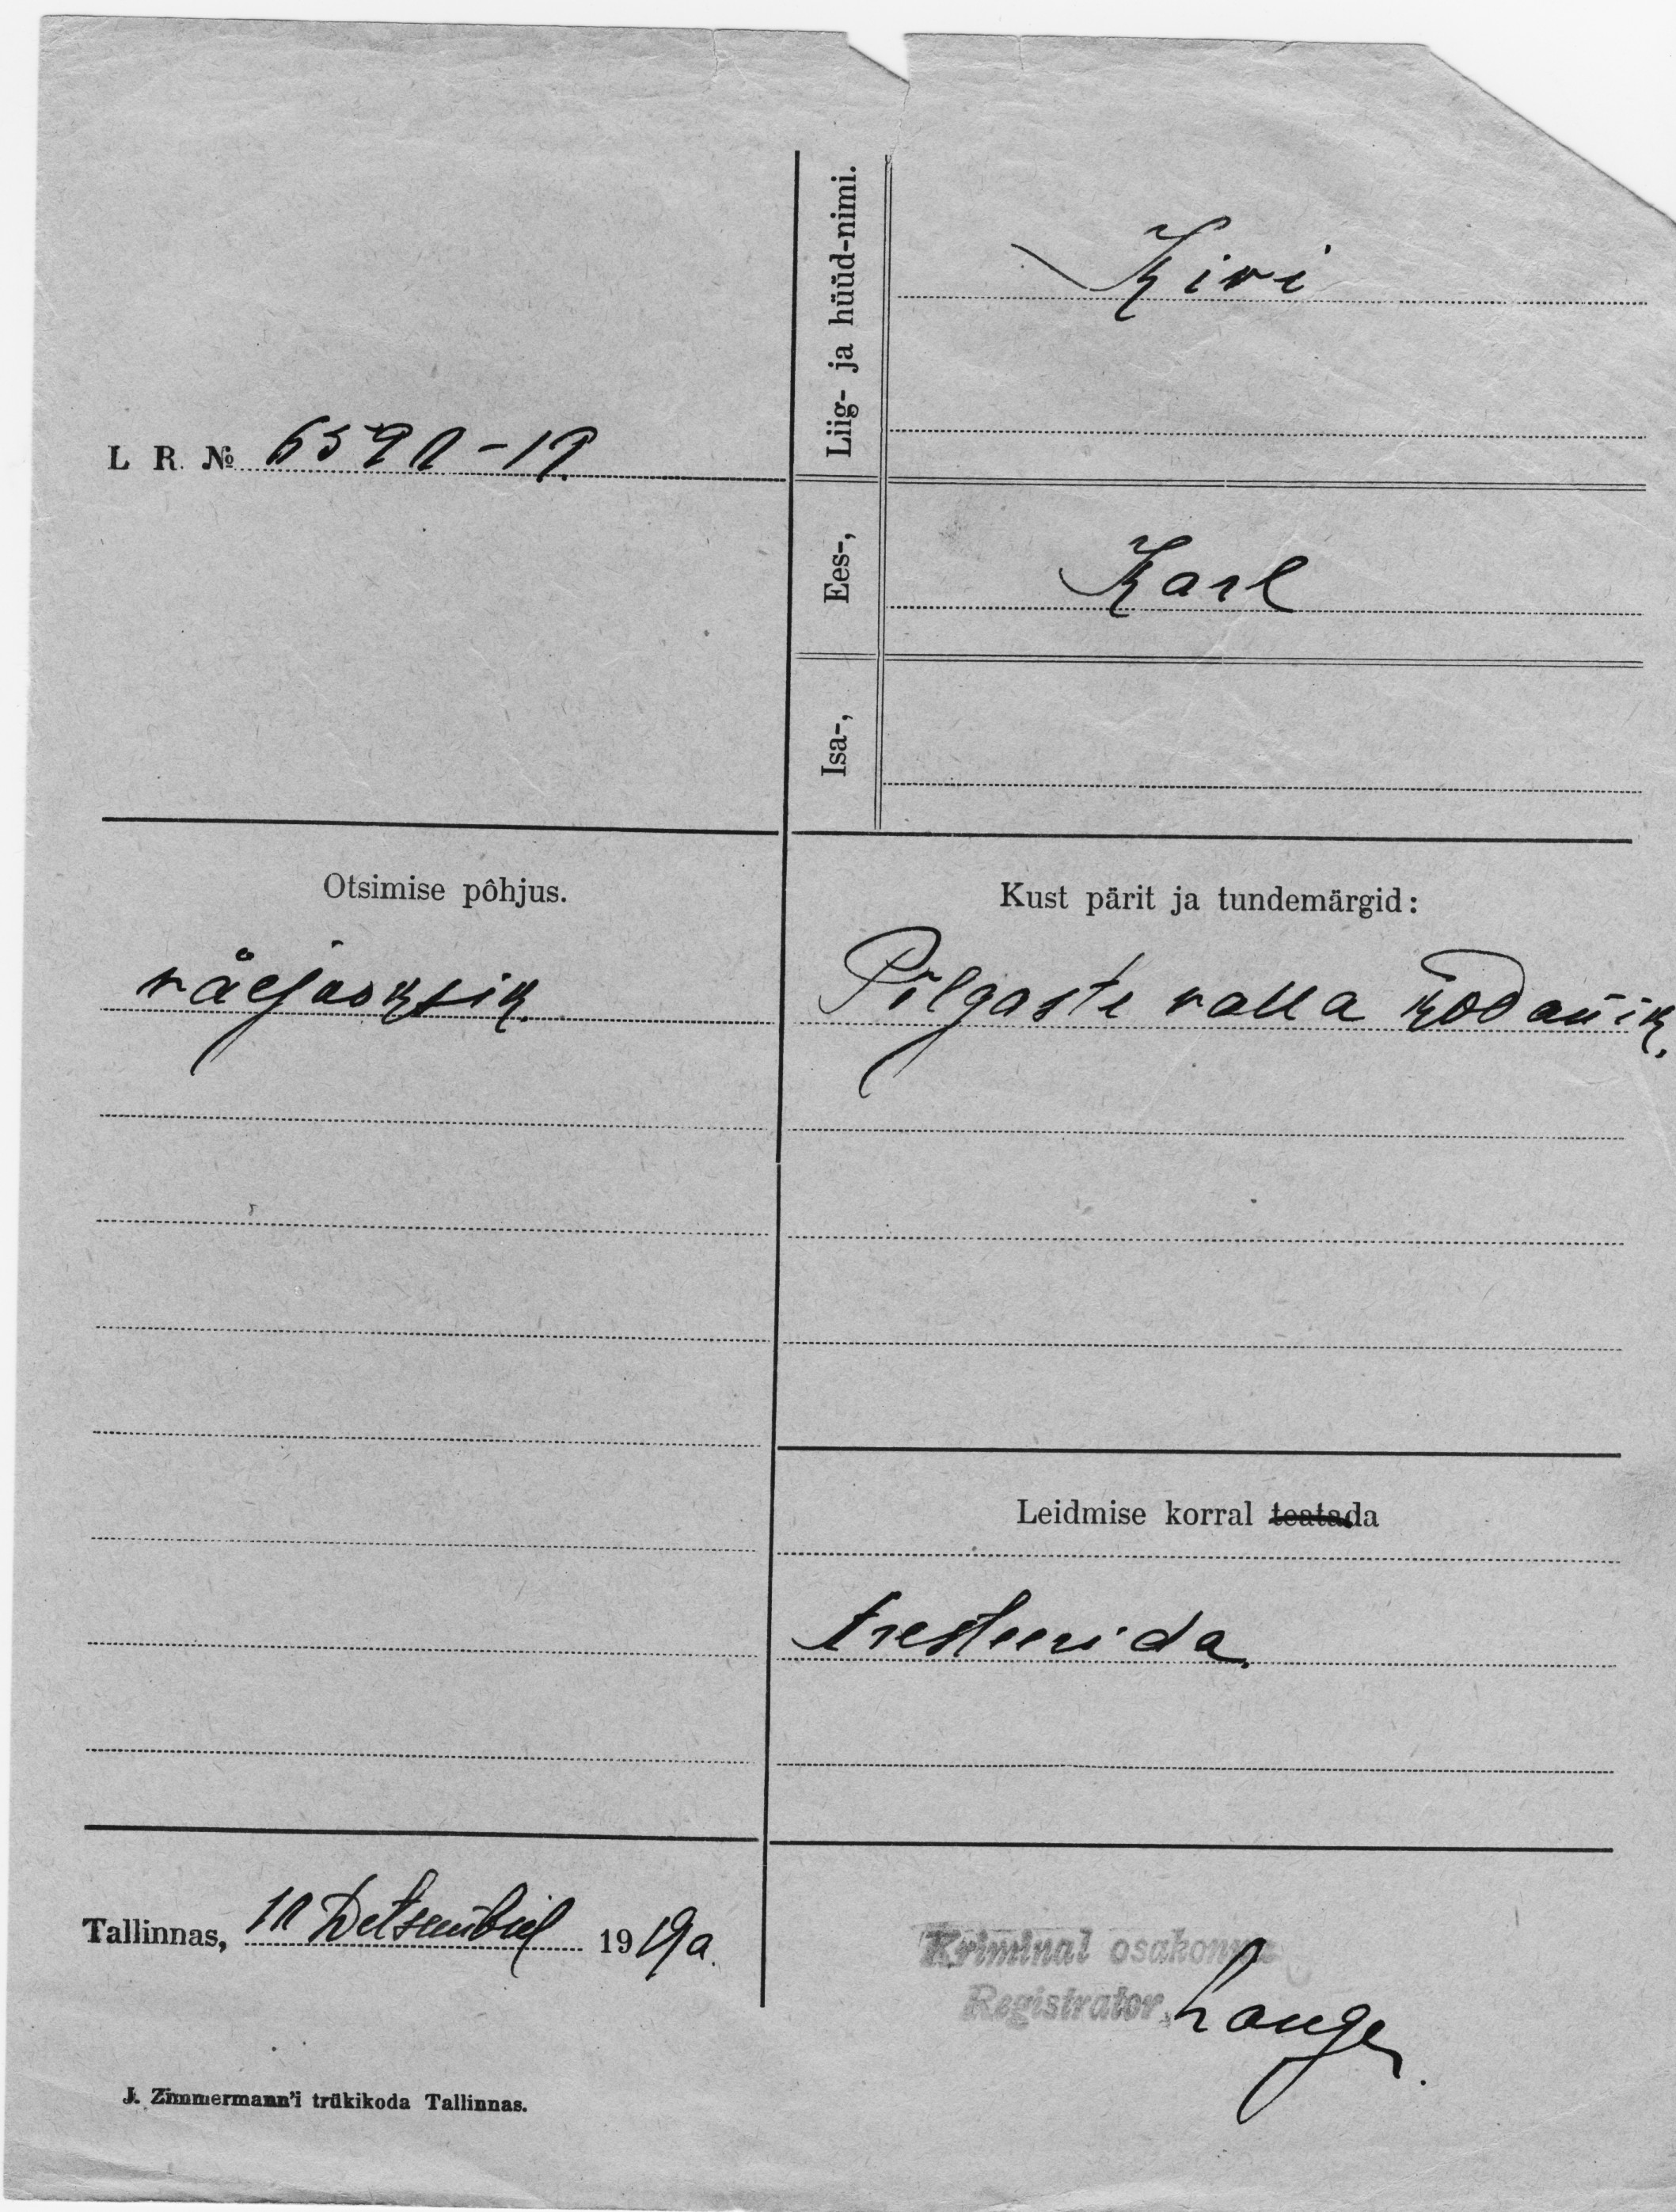 Liig- ja hüüd-nimi.
Kivi
L R. №
Ees-,
Karl
Isa-,
Otsimise pôhjus.
väejooksik.
Kust pärit ja tundemärgid:
Põlgaste valla kodanik.
Leidmise korral teatada
Aresteerida.
Tallinnas, 10 Detsembril 1919 a.
Kriminal osakonna
Registrator Lange.
J. Zimmermann'i trükikoda Tallinnas.